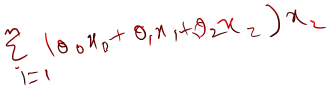 \sum_{i=1}^{n} (\theta_0 x_0 + \theta_1 x_1 + \theta_2 x_2) x_2